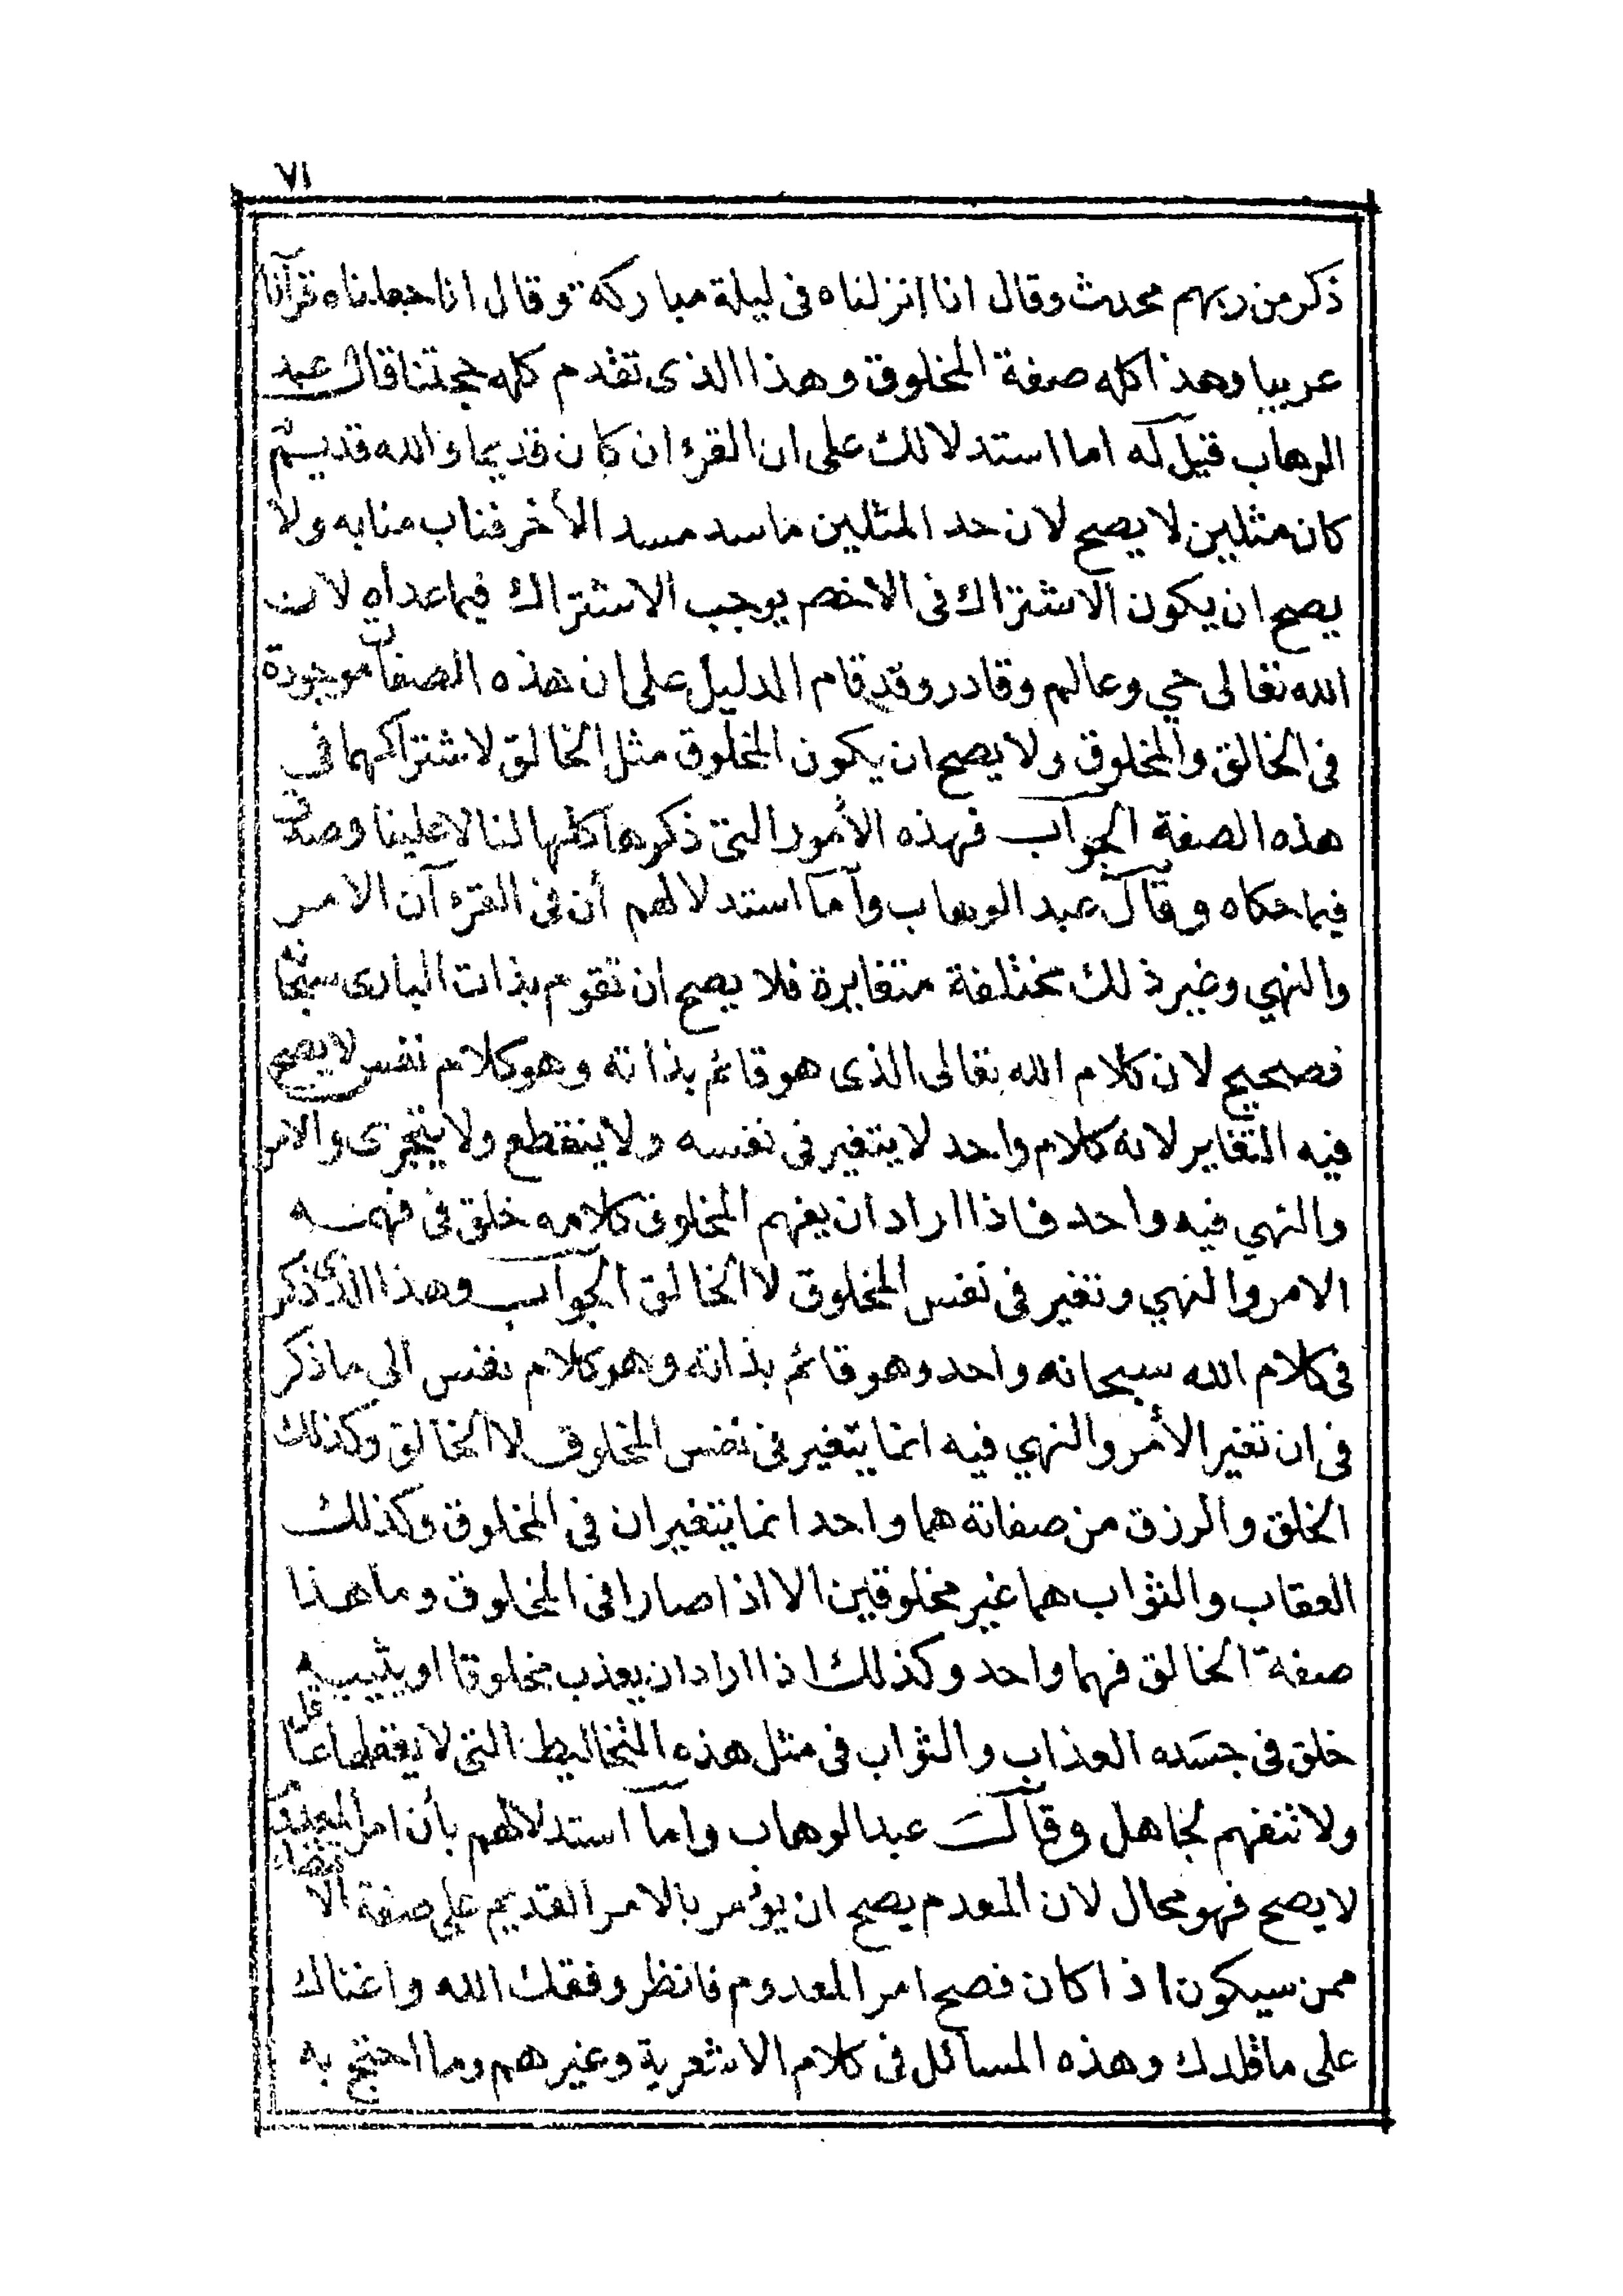 ٧١
ذكر من ربهم محدث وقال انا انزلناه فى ليلة مباركة وقال انا جعلناه قرآنا
عربيا وهذا كله صفة المخلوق وهذا الذى تقدم كله حجتنا قال عبد
الوهاب قيل له اما استدلالك على ان القرءان كان قديما والله قديم
كان مثلين لا يصح لان حد المثلين ما سد مسد الأخر فناب منابه ولا
يصح ان يكون الاشتراك فى الاخص يوجب الاشتراك فيما عداه لان
الله تعالى حي وعالم وقادر وقد قام الدليل على ان هذه الصفات موجودة
فى الخالق والمخلوق ولا يصح ان يكون المخلوق مثل الخالق لاشتراكهما في
هذه الصفة الجواب فهذه الأمور التى ذكرها كلها لنا لا علينا وصدق
فيما حكاه وقال عبد الوهاب وأما استدلالهم أن فى القرءآن الامر
والنهي وغير ذلك مختلفة متغايرة فلا يصح ان تقوم بذات البارى سبحانه
فصحيح لان كلام الله تعالى الذى هو قائم بذاته وهو كلام نفس لا يصح
فيه التغاير لانه كلام واحد لا يتغير فى نفسه ولا ينقطع ولا يتجزى والامر
والنهي فيه واحد فاذا اراد ان يفهم المخلوق كلامه خلق فى فهمه
الامر والنهي وتغير فى نفس المخلوق لا الخالق الجواب وهذا الذى ذكر
فى كلام الله سبحانه واحد وهو قائم بذاته وهو كلام نفس الى ما ذكر
فى ان تغير الأمر والنهي فيه انما يتغير فى نفس المخلوق لا الخالق وكذلك
الخلق والرزق من صفاته هما واحد انما يتغيران في المخلوق وكذلك
العقاب والثواب هما غير مخلوقين الا اذا صارا فى المخلوق وما هذا
صفة الخالق فهما واحد وكذلك اذا اراد ان يعذب مخلوقا او يثيبه
خلق فى جسده العذاب والثواب فى مثل هذه التخاليط التى لا يعقلها عاقل
ولا تفهم لجاهل وقال عبد الوهاب واما استدلالهم بأن امر المعدوم
لا يصح فهو محال لان المعدم يصح ان يؤمر بالامر القديم على صفة الاقتضاء
ممن سيكون اذا كان فصح امر المعدوم فانظر وفقك الله واغناك
على ما قلدك وهذه المسائل فى كلام الاشعرية وغيرهم وما احتج به